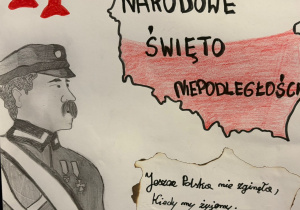 NARODOWE
ŚWIĘTO
NIEPODLEGŁOŚCI
Jeszcze Polska nie zginęła,
Kiedy my żyjemy.